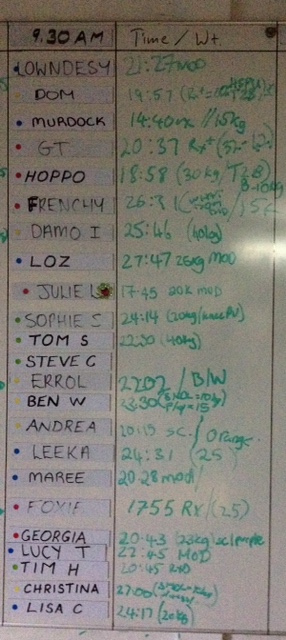 9.30AM Time / Wt.
LOWNDESY 21:27 MOD
DOM 19:57 (Rx+
MURDOCK 14:40 RX //15kg
GT 20:37 Rx+
HOPPO 18:58 (30kg / T2B)
FRENCHY 26:31
DAMO I 25:46 (40kg)
LOZ 27:47 25kg MOD
JULIE L 17:45 20K MOD
SOPHIE S 24:14 (20kg/knee PU)
TOM S 22:30 (40kg)
STEVE C
ERROL 2202 / B/W
BEN W 23:30
ANDREA SC. / orange.
LEEKA 24:31 (25)
MAREE 20:28 mod
FOXIE 1755 RX/(25)
GEORGIA 20:43 (23kg) sc/purple
LUCY T 22:45 MOD
TIM H 20:45
CHRISTINA 27:00
LISA C 24:17 (20kg)